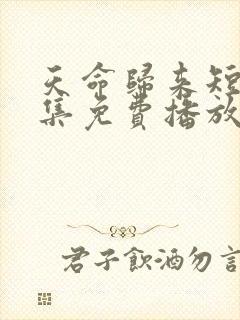 天命歸來短
集免費播放
君子飲酒勿